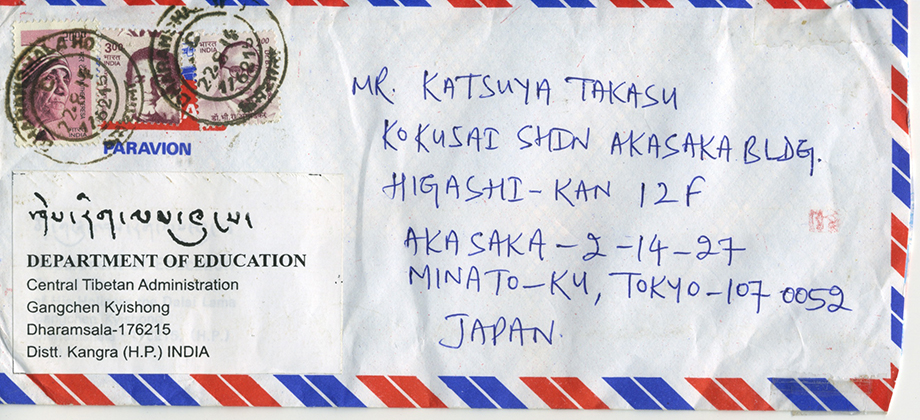 3.00 भारत
INDIA
176215
PAR AVION
MR. KATSUYA TAKASU
KOKUSAI SHIN AKASAKA BLDG.
HIGASHI-KAN 12F
AKASAKA-2-14-27
MINATO-KU, TOKYO-107 0052
JAPAN.
DEPARTMENT OF EDUCATION
Central Tibetan Administration
Gangchen Kyishong
Dharamsala-176215
Distt. Kangra (H.P.) INDIA